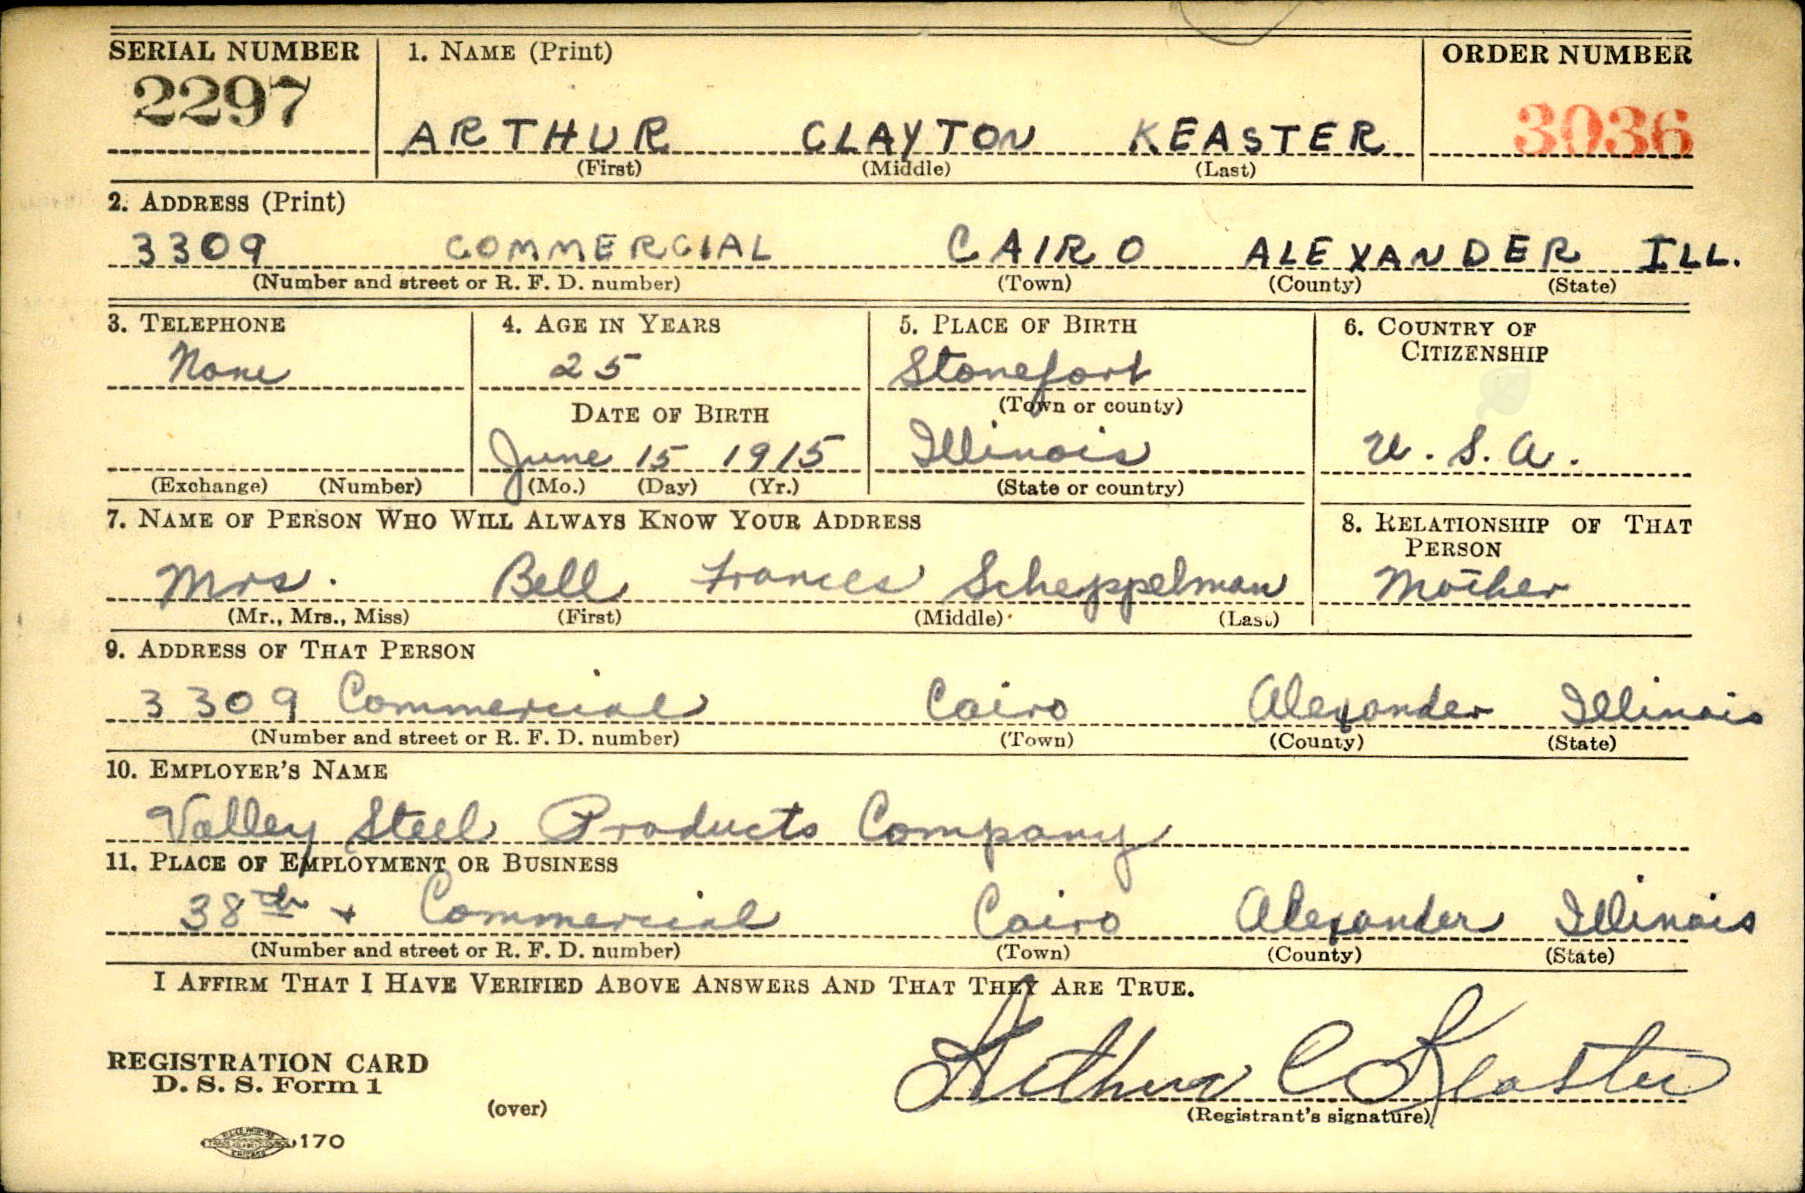 SERIAL NUMBER 1. NAME (Print) ORDER NUMBER
2297 ARTHUR CLAYTON KEASTER 3036
(First) (Middle) (Last)
2. ADDRESS (Print)
3309 COMMERCIAL CAIRO ALEXANDER ILL.
(Number and street or R. F. D. number) (Town) (County) (State)
3. TELEPHONE 4. AGE IN YEARS 5. PLACE OF BIRTH 6. COUNTRY OF CITIZENSHIP
None 25 Stonefort
(Town or county)
DATE OF BIRTH
June 15 1915 Illinois U.S.A.
(Exchange) (Number) (Mo.) (Day) (Yr.) (State or country)
7. NAME OF PERSON WHO WILL ALWAYS KNOW YOUR ADDRESS 8. RELATIONSHIP OF THAT PERSON
Mrs. Bell Frances Scheppelman Mother
(Mr., Mrs., Miss) (First) (Middle) (Last)
9. ADDRESS OF THAT PERSON
3309 Commercial Cairo Alexander Illinois
(Number and street or R. F. D. number) (Town) (County) (State)
10. EMPLOYER'S NAME
Valley Steel Products Company
11. PLACE OF EMPLOYMENT OR BUSINESS
38th + Commercial Cairo Alexander Illinois
(Number and street or R. F. D. number) (Town) (County) (State)
I AFFIRM THAT I HAVE VERIFIED ABOVE ANSWERS AND THAT THEY ARE TRUE.
Arthur C Keaster
(Registrant's signature)
REGISTRATION CARD
D. S. S. Form 1
(over)
170